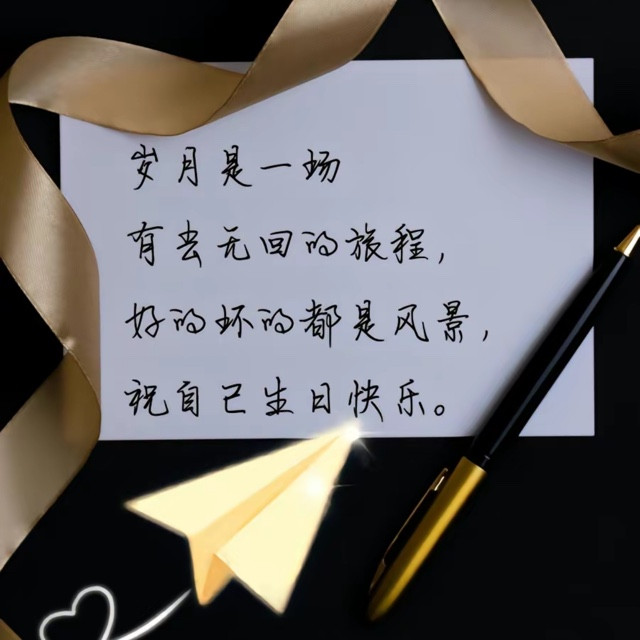 岁月是一场
有去无回的旅程,
好的坏的都是风景,
祝自己生日快乐。